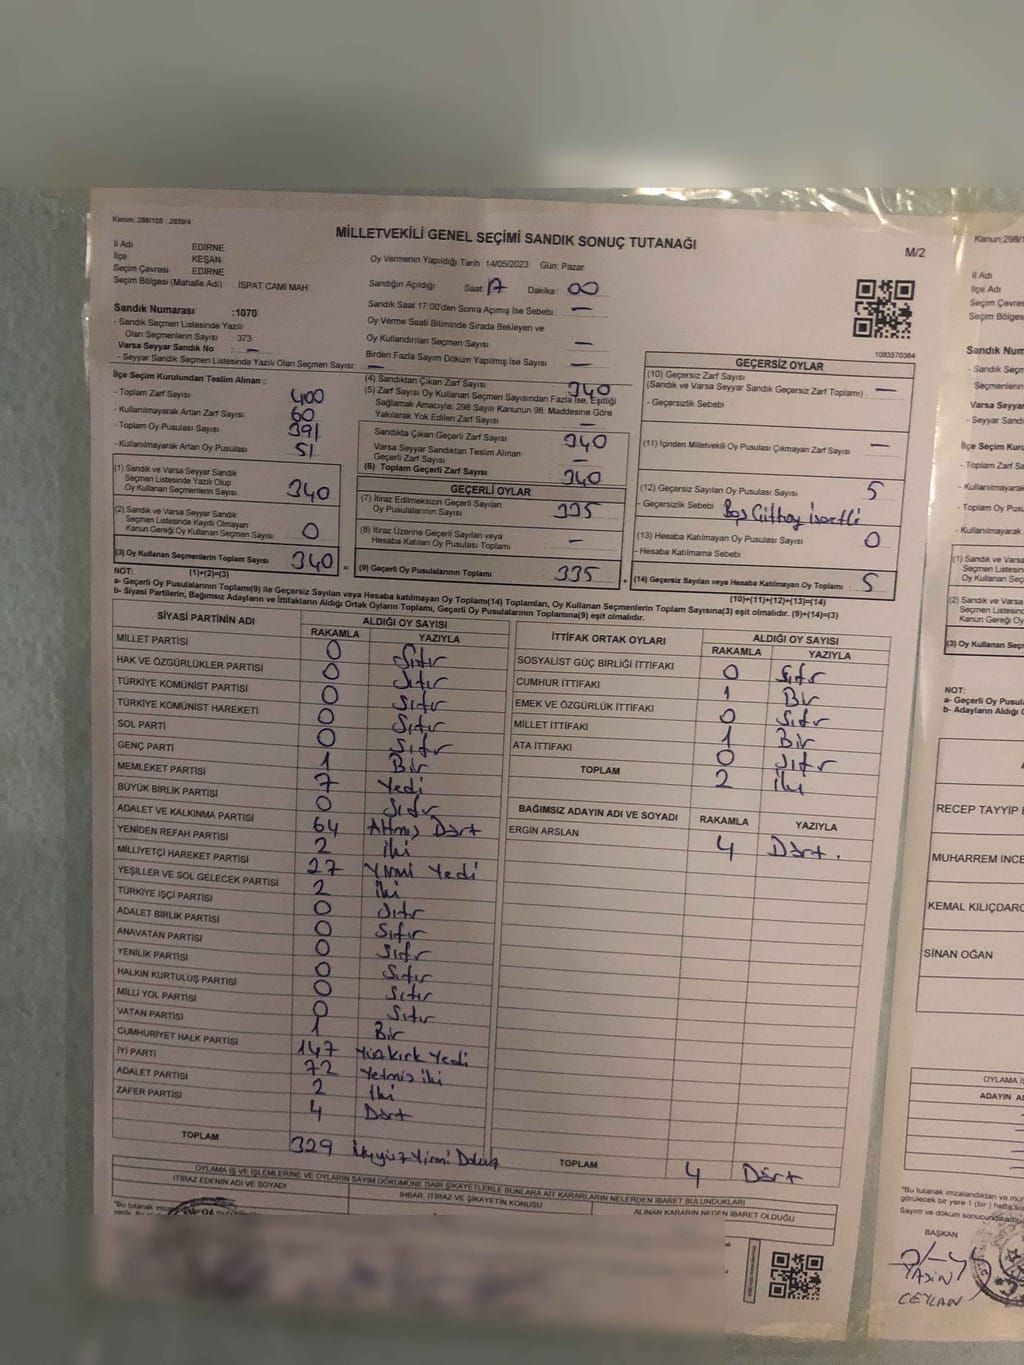 Kanun; 298/105 , 2839/4
MİLLETVEKİLİ GENEL SEÇİMİ SANDIK SONUÇ TUTANAĞI
M/2
İl Adı EDİRNE
İlçe KEŞAN
Seçim Çevresi EDİRNE
Seçim Bölgesi (Mahalle Adı) : İSPAT CAMİ MAH
Oy Vermenin Yapıldığı Tarih: 14/05/2023 Gün: Pazar
Sandığın Açıldığı Saat: 17 Dakika: 00
Sandık Saat 17:00'dan Sonra Açılmış İse Sebebi : —
Oy Verme Saati Bitiminde Sırada Bekleyen ve
Oy Kullandırılan Seçmen Sayısı : —
Birden Fazla Sayım Döküm Yapılmış İse Sayısı : —
Sandık Numarası :1070
- Sandık Seçmen Listesinde Yazılı
Olan Seçmenlerin Sayısı : 373
Varsa Seyyar Sandık No : —
- Seyyar Sandık Seçmen Listesinde Yazılı Olan Seçmen Sayısı: —
1083570364
İlçe Seçim Kurulundan Teslim Alınan :
- Toplam Zarf Sayısı : 400
- Kullanılmayarak Artan Zarf Sayısı : 60
- Toplam Oy Pusulası Sayısı : 391
- Kullanılmayarak Artan Oy Pusulası : 51
(1) Sandık ve Varsa Seyyar Sandık
Seçmen Listesinde Yazılı Olup
Oy Kullanan Seçmenlerin Sayısı : 340
(2) Sandık ve Varsa Seyyar Sandık
Seçmen Listesinde Kayıtlı Olmayan
Kanun Gereği Oy Kullanan Seçmen Sayısı : 0
(3) Oy Kullanan Seçmenlerin Toplam Sayısı : 340
(1)+(2)=(3)
(4) Sandıktan Çıkan Zarf Sayısı : 340
(5) Zarf Sayısı Oy Kullanan Seçmen Sayısından Fazla İse, Eşitliği
Sağlamak Amacıyla; 298 Sayılı Kanunun 98. Maddesine Göre
Yakılarak Yok Edilen Zarf Sayısı : —
Sandıkta Çıkan Geçerli Zarf Sayısı : 340
Varsa Seyyar Sandıktan Teslim Alınan
Geçerli Zarf Sayısı : —
(6) Toplam Geçerli Zarf Sayısı : 340
GEÇERLİ OYLAR
(7) İtiraz Edilmeksizin Geçerli Sayılan
Oy Pusulalarının Sayısı : 335
(8) İtiraz Üzerine Geçerli Sayılan veya
Hesaba Katılan Oy Pusulası Toplamı : —
= (9) Geçerli Oy Pusulalarının Toplamı : 335 +
GEÇERSİZ OYLAR
(10) Geçersiz Zarf Sayısı
(Sandık ve Varsa Seyyar Sandık Geçersiz Zarf Toplamı) : —
- Geçersizlik Sebebi :
(11) İçinden Milletvekili Oy Pusulası Çıkmayan Zarf Sayısı : —
(12) Geçersiz Sayılan Oy Pusulası Sayısı : 5
- Geçersizlik Sebebi : Boş
(13) Hesaba Katılmayan Oy Pusulası Sayısı : 0
- Hesaba Katılmama Sebebi :
(14) Geçersiz Sayılan veya Hesaba Katılmayan Oy Toplamı : 5
(10)+(11)+(12)+(13)=(14)
NOT:
a- Geçerli Oy Pusulalarının Toplamı(9) ile Geçersiz Sayılan veya Hesaba katılmayan Oy Pusulası Toplamı(14) Toplamları, Oy Kullanan Seçmenlerin Toplam Sayısına(3) eşit olmalıdır. (9)+(14)=(3)
b- Siyasi Partilerin, Bağımsız Adayların ve İttifakların Aldığı Ortak Oyların Toplamı, Geçerli Oy Pusulalarının Toplamına(9) eşit olmalıdır.
SİYASİ PARTİNİN ADI ALDIĞI OY SAYISI
RAKAMLA YAZIYLA
MİLLET PARTİSİ 0 Sıfır
HAK VE ÖZGÜRLÜKLER PARTİSİ 0 Sıfır
TÜRKİYE KOMÜNİST PARTİSİ 0 Sıfır
TÜRKİYE KOMÜNİST HAREKETİ 0 Sıfır
SOL PARTİ 0 Sıfır
GENÇ PARTİ 1 Bir
MEMLEKET PARTİSİ 7 Yedi
BÜYÜK BİRLİK PARTİSİ 0 Sıfır
ADALET VE KALKINMA PARTİSİ 64 Altmış Dört
YENİDEN REFAH PARTİSİ 2 İki
MİLLİYETÇİ HAREKET PARTİSİ 27 Yirmi Yedi
YEŞİLLER VE SOL GELECEK PARTİSİ 2 İki
TÜRKİYE İŞÇİ PARTİSİ 0 Sıfır
ADALET BİRLİK PARTİSİ 0 Sıfır
ANAVATAN PARTİSİ 0 Sıfır
YENİLİK PARTİSİ 0 Sıfır
HALKIN KURTULUŞ PARTİSİ 0 Sıfır
MİLLİ YOL PARTİSİ 0 Sıfır
VATAN PARTİSİ 1 Bir
CUMHURİYET HALK PARTİSİ 147 Yüzkırk Yedi
İYİ PARTİ 72 Yetmiş iki
ADALET PARTİSİ 2 İki
ZAFER PARTİSİ 4 Dört
TOPLAM 329 Üçyüz Yirmi Dokuz
İTTİFAK ORTAK OYLARI ALDIĞI OY SAYISI
RAKAMLA YAZIYLA
SOSYALİST GÜÇ BİRLİĞİ İTTİFAKI 0 Sıfır
CUMHUR İTTİFAKI 1 Bir
EMEK VE ÖZGÜRLÜK İTTİFAKI 0 Sıfır
MİLLET İTTİFAKI 1 Bir
ATA İTTİFAKI 0 Sıfır
TOPLAM 2 İki
BAĞIMSIZ ADAYIN ADI VE SOYADI RAKAMLA YAZIYLA
ERGİN ARSLAN 4 Dört.
TOPLAM 4 Dört
OYLAMA İŞ VE İŞLEMLERİNE VE OYLARIN SAYIM DÖKÜMÜNE DAİR ŞİKAYETLERLE BUNLARA AİT KARARLARIN NELERDEN İBARET BULUNDUKLARI
İTİRAZ EDENİN ADI VE SOYADI
İHBAR, İTİRAZ VE ŞİKAYETİN KONUSU
ALINAN KARARIN NEDEN İBARET OLDUĞU
"Bu tutanak
Kanun;298/1
İl Adı
İlçe Adı
Seçim Çevres
Seçim Bölges
Sandık Num
- Sandık Seçm
Seçmenlerin
Varsa Seyyar
- Seyyar Sand
İlçe Seçim Kuru
- Toplam Zarf S
- Kullanılmayarak
- Toplam Oy Pusu
- Kullanılmayarak
(1) Sandık ve Varsa
Seçmen Listesin
Oy Kullanan Seç
(2) Sandık ve Varsa
Seçmen Listesin
Kanun Gereği Oy
(3) Oy Kullanan Seçm
NOT:
a- Geçerli Oy Pusulal
b- Adayların Aldığı O
RECEP TAYYİP
MUHARREM İNCE
KEMAL KILIÇDARO
SİNAN OĞAN
OYLAMA İŞ
ADAYIN A
"Bu tutanak imzalandıktan ve mü
görülecek bir yere 1 (bir ) hafta
Sayım ve döküm sonucunda
BAŞKAN
YASİN
CEYLAN